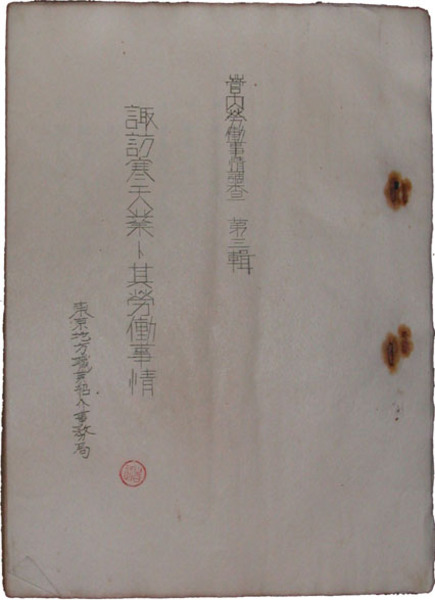 管内勞働事情調查 第三輯
諏訪寒天業ト其勞働事情
東京地方職業紹介事務局